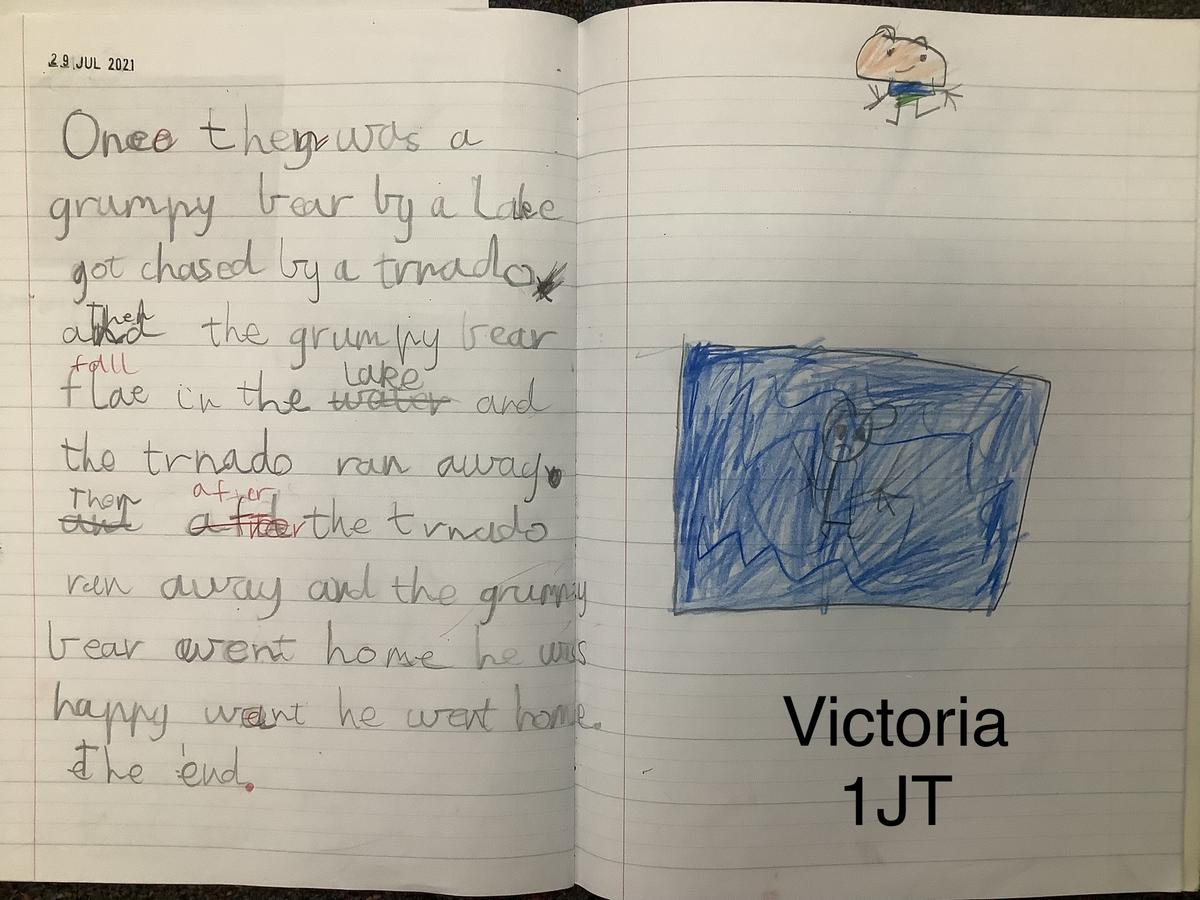 29 JUL 2021
Once ther was a
grumpy bear by a Lake
got chased by a trnado
Then the grumpy bear
fall
flae in the water lake and
the trnado ran away.
Then after the trnado
ran away and the grumpy
bear went home he was
happy went he went home.
the end.
Victoria
1JT